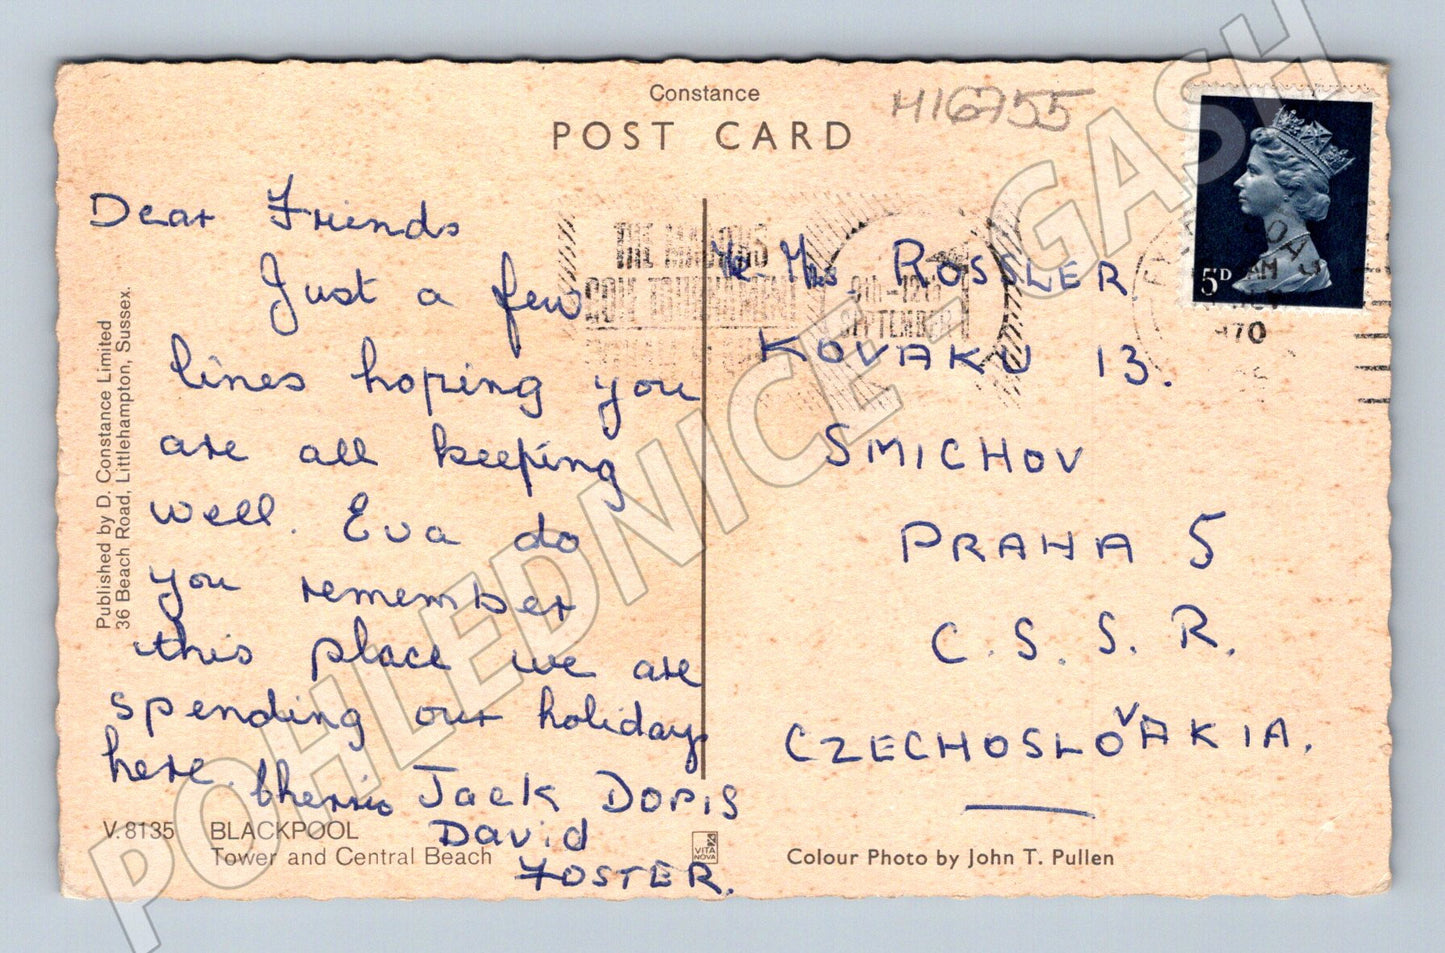 Constance
POST CARD
H16755
Dear Friends
Just a few
lines hoping you
are all keeping
well. Eva do
you remember
this place we are
spending our holiday
here. Cherrio Jack Doris
David
FOSTER.
Mr. Mrs ROSSLER
KOVAKU 13.
SMICHOV
PRAHA 5
C.S.S.R.
CZECHOSLOVAKIA.
5D
AM
1970
THE
TOURNAMENT
SEPTEMBER
Published by D. Constance Limited
36 Beach Road, Littlehampton, Sussex.
V.8135 BLACKPOOL
Tower and Central Beach
VITA
NOVA
Colour Photo by John T. Pullen
POHLEDNICE - GASH